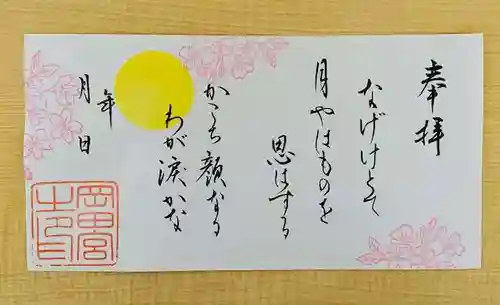 奉拝
なげけとて
月やはものを
思はする
かこち顔なる
わが涙かな
年
月 日
岡田宮